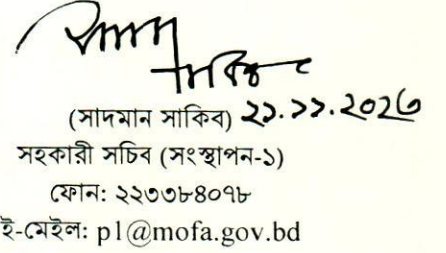 (সাদমান সাকিব) ২১.১১.২০২৩
সহকারী সচিব (সংস্থাপন-১)
ফোন: ২২৩৩৮৪০৭৮
ই-মেইল: p1@mofa.gov.bd